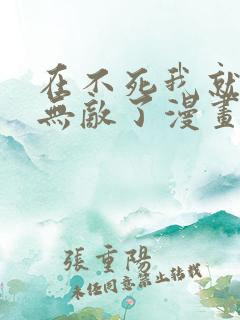 在不死我就
無敵了漫畫
張重陽
未經同意禁止轉載